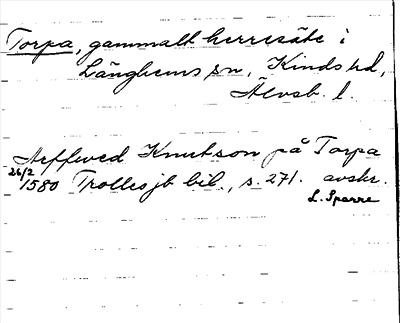 Torpa, gammalt herresäte i
Länghems sn, Kinds hd,
Älvsb. l.
Arffwed Knutson på Torpa
26/2 1580 Trolles jb bil., s. 271. avskr.
L. Sparre